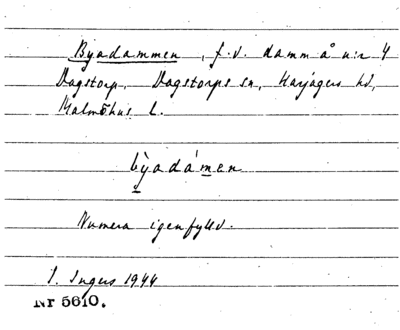 Byadammen, f.d. damm å n:r 4
Dagstorp, Dagstorps sn, Harjagers hd,
Malmöhus l.
bỳadámen
Numera igenfylld.
I. Ingers 1944
Nr 5610.